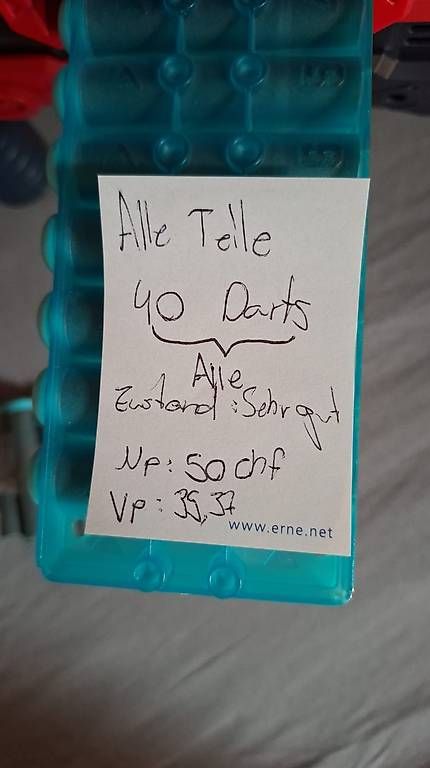 Alle Teile
40 Darts
Alle
Zustand : Sehr gut
Np : 50 chf
Vp : 39,37
www.erne.net